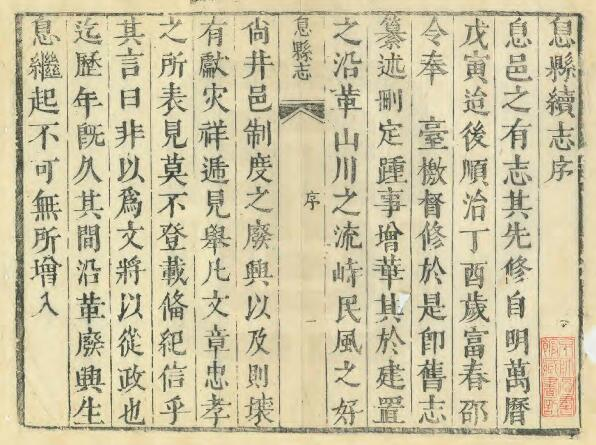 息縣續志序
息邑之有志其先修自明萬曆
戊寅迨後順治丁酉歲富春邵
令奉　臺檄督修於是卽舊志
纂述刪定踵事增華其於建置
之沿革山川之流峙民風之好
息縣志
序
一
尙井邑制度之廢興以及則壤
有獻灾祥遞見舉凡文章忠孝
之所表見莫不登載備紀信乎
其言曰非以爲文將以從政也
迄歷年旣久其間沿革廢興生
息繼起不可無所增入